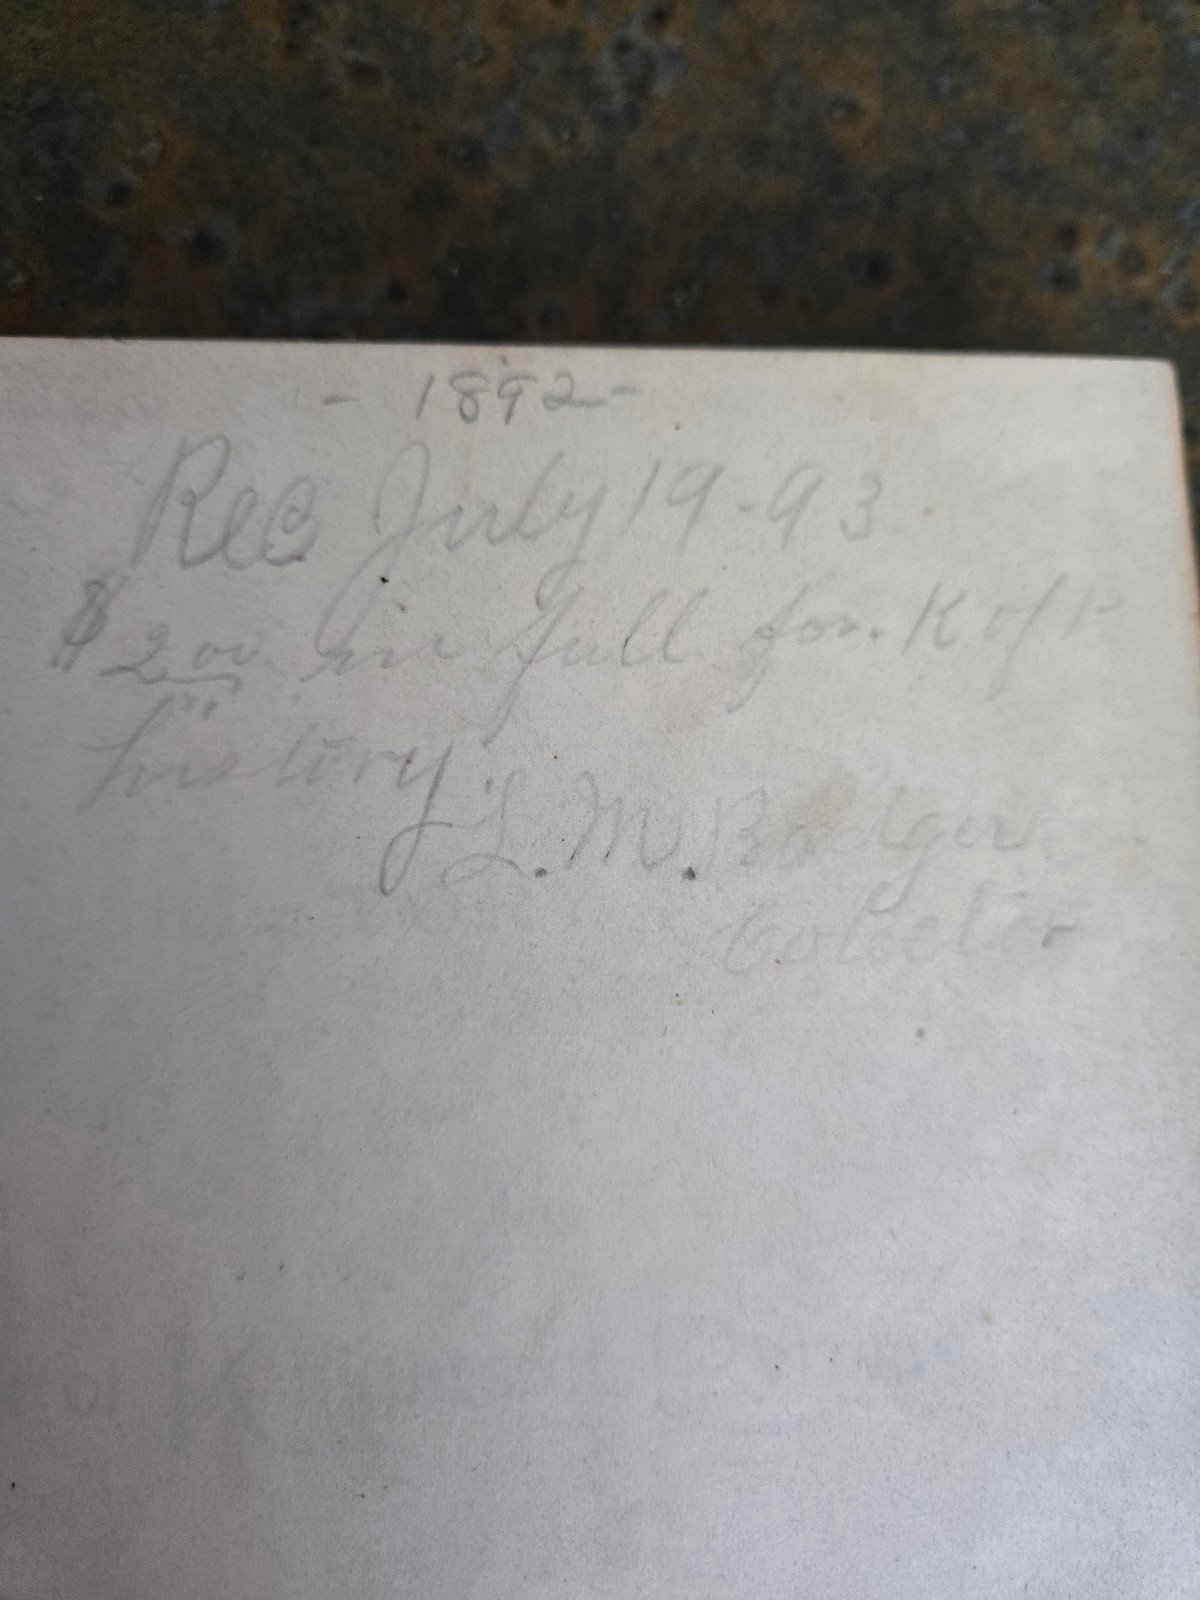 - 1892 -
Rec July 19 - 93
$2.00 in full for K of P
history.
L. M. Badger
Colector